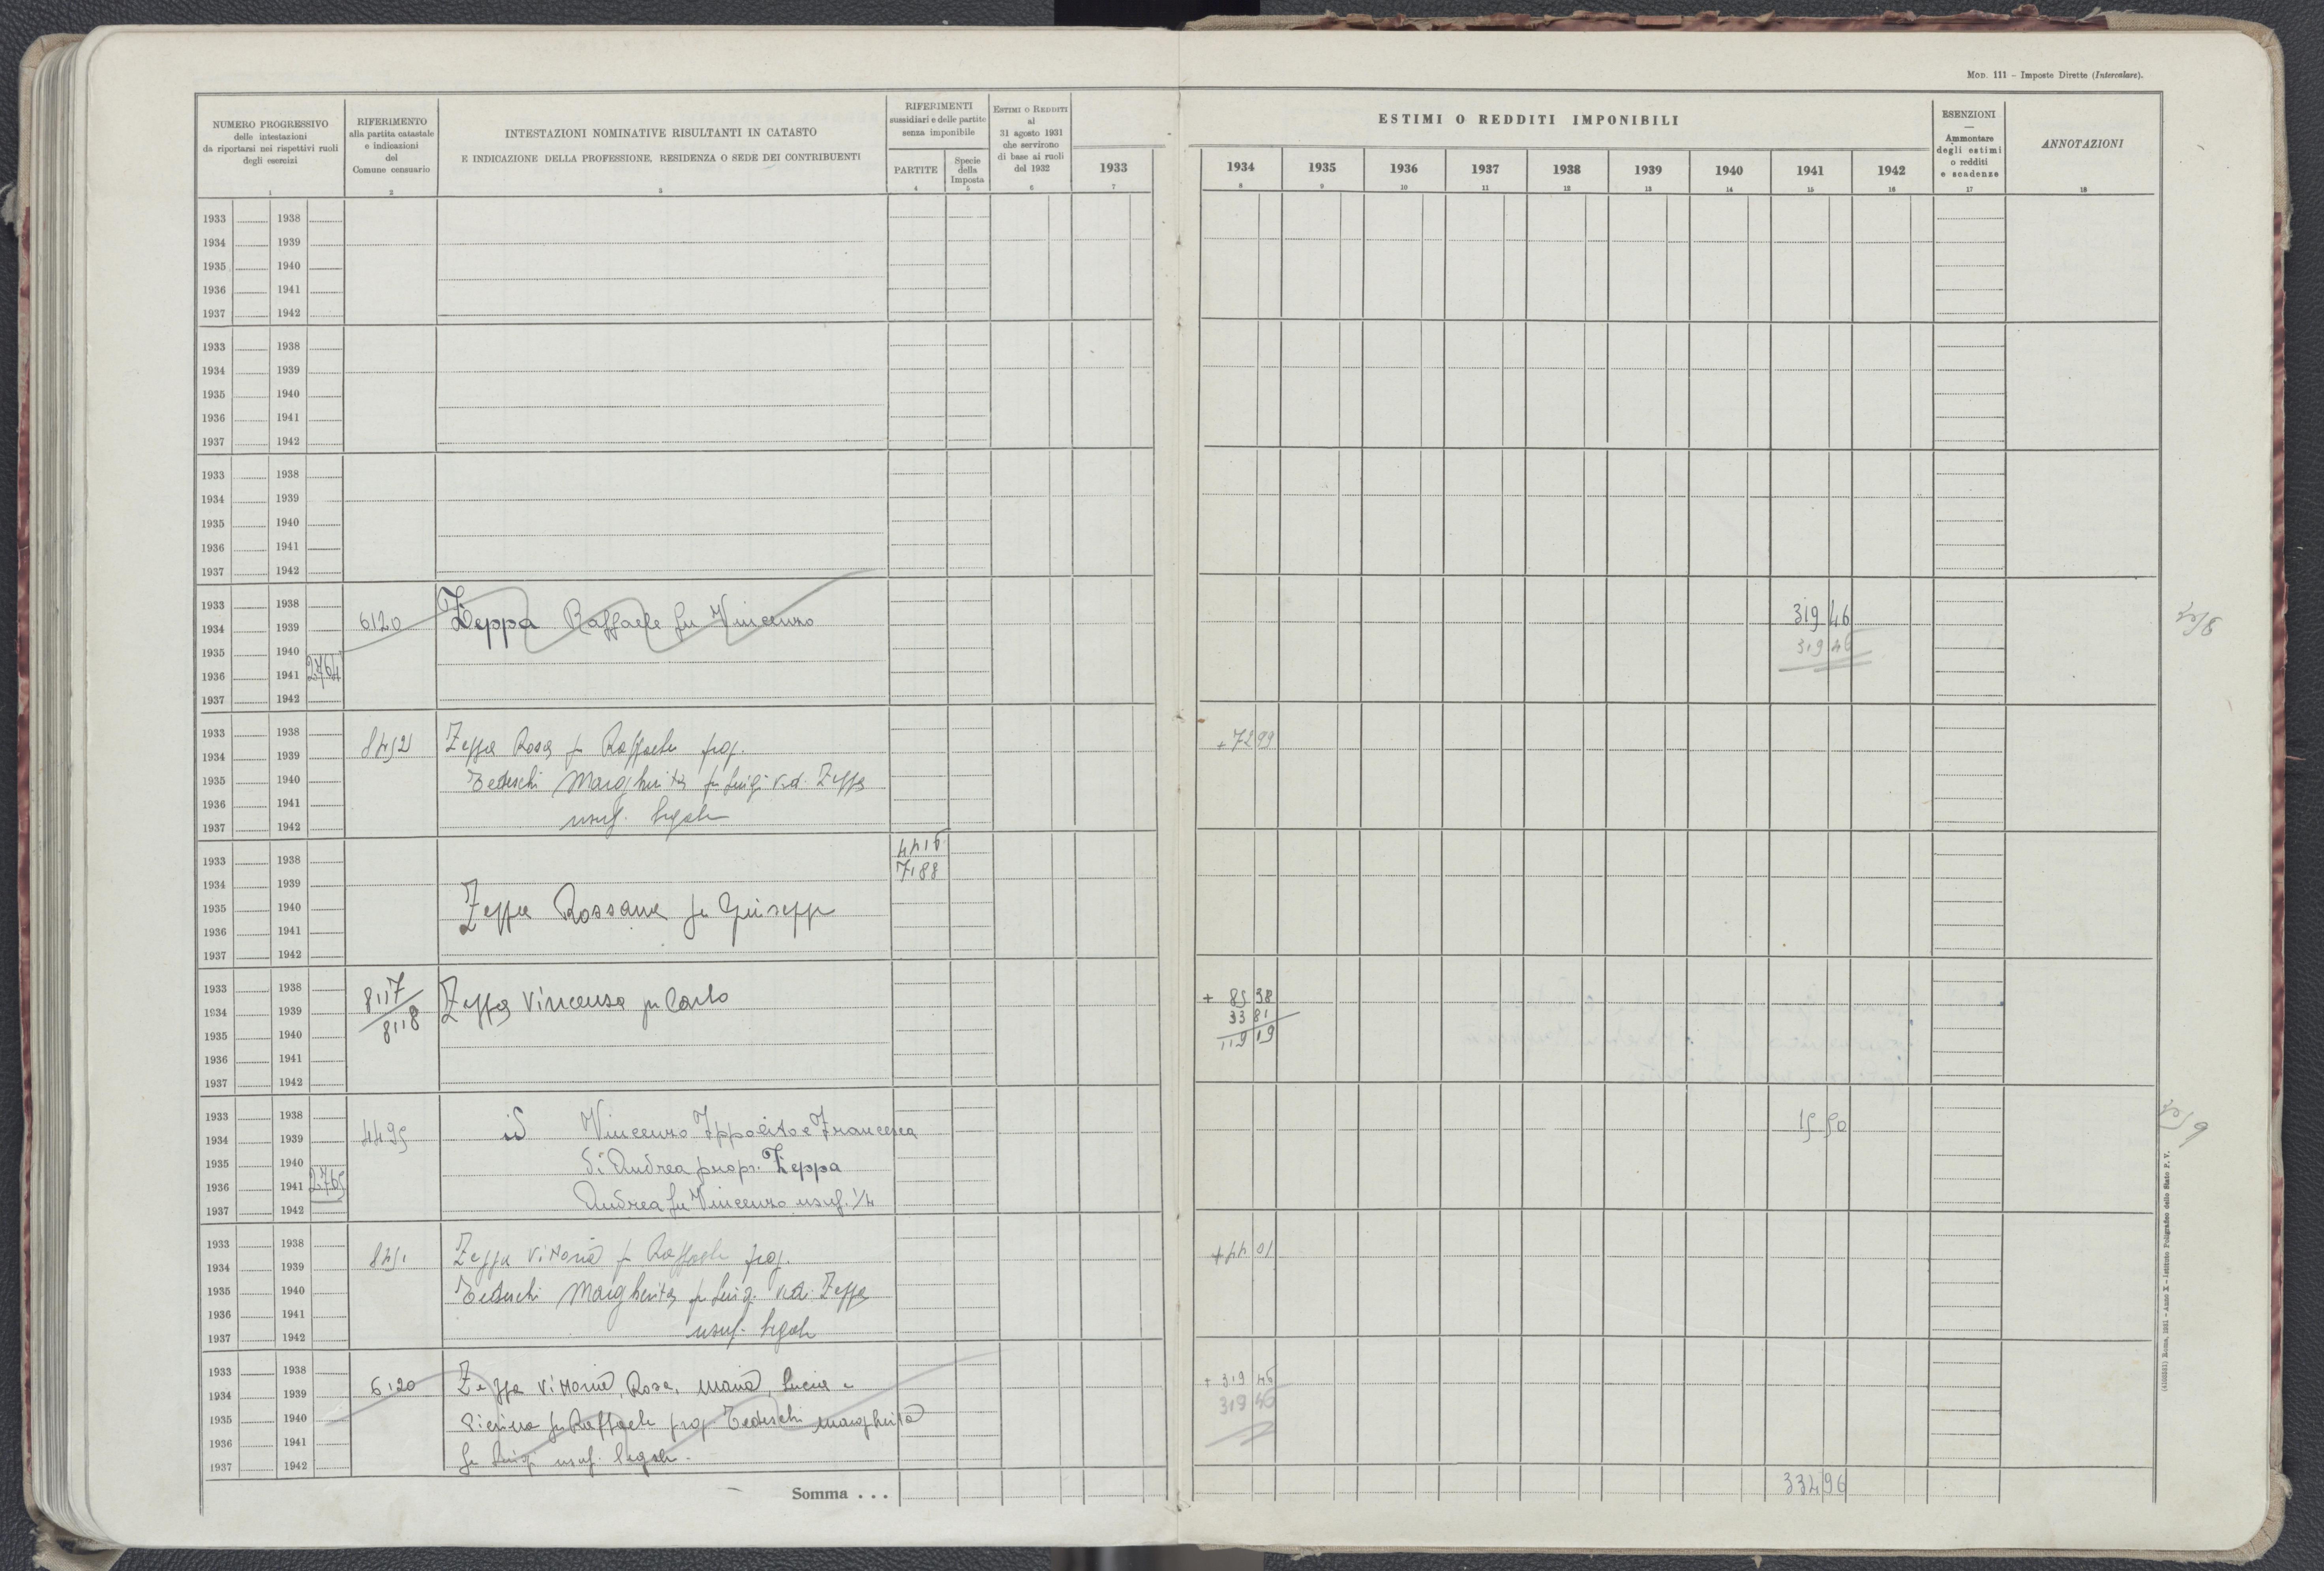 Mod. 111 – Imposte Dirette (Intercalare).
NUMERO PROGRESSIVO
delle intestazioni
da riportarsi nei rispettivi ruoli
degli esercizi
1
RIFERIMENTO
alla partita catastale
e indicazioni
del
Comune censuario
2
INTESTAZIONI NOMINATIVE RISULTANTI IN CATASTO
E INDICAZIONE DELLA PROFESSIONE, RESIDENZA O SEDE DEI CONTRIBUENTI
3
RIFERIMENTI
sussidiari e delle partite
senza imponibile
PARTITE
4
Specie
della
Imposta
5
Estimi o Redditi
al
31 agosto 1931
che servirono
di base ai ruoli
del 1932
6
1933
7
ESTIMI O REDDITI IMPONIBILI
1934 1935 1936 1937 1938 1939 1940 1941 1942
8 9 10 11 12 13 14 15 16
ESENZIONI
—
Ammontare
degli estimi
o redditi
e scadenze
17
ANNOTAZIONI
18
1933 1938
1934 1939
1935 1940
1936 1941
1937 1942
1933 1938
1934 1939
1935 1940
1936 1941
1937 1942
1933 1938
1934 1939
1935 1940
1936 1941
1937 1942
1933 1938
1934 1939 6120 Zeppa Raffaele fu Vincenzo 319 46
1935 1940 319 46
1936 1941 2764
1937 1942
1933 1938
1934 1939 8452 Zeppa Rosa fu Raffaele prop. + 72 99
1935 1940 Tedeschi Margherita fu Luigi ved. Zeppa
1936 1941
1937 1942 usuf. legale
4416
1933 1938
1934 1939 7188
1935 1940 Zeppa Rossana fu Giuseppe
1936 1941
1937 1942
1933 1938 8117
1934 1939 8118 Zeppa Vincenza fu Carlo + 85 38
33 81
1935 1940 119 19
1936 1941
1937 1942
1933 1938
1934 1939 4495 id Vincenzo Ippolito e Francesca 15 50
1935 1940 di Andrea propr. Zeppa
1936 1941 2765
1937 1942 Andrea fu Vincenzo usuf. 1/4
1933 1938
1934 1939 8451 Zeppa Vittoria fu Raffaele prop. + 44 01
1935 1940 Tedeschi Margherita fu Luigi ved. Zeppa
1936 1941
1937 1942 usuf. legale
1933 1938
1934 1939 6120 Zeppa Vittoria, Rosa, Maria, Lucia e + 319 46
319 46
1935 1940 Pierina fu Raffaele prop. Tedeschi Margherita
1936 1941
1937 1942 fu Luigi usuf. legale.
Somma . . . 334 96
(4100351) Roma, 1931 – Anno X – Istituto Poligrafico dello Stato P. V.